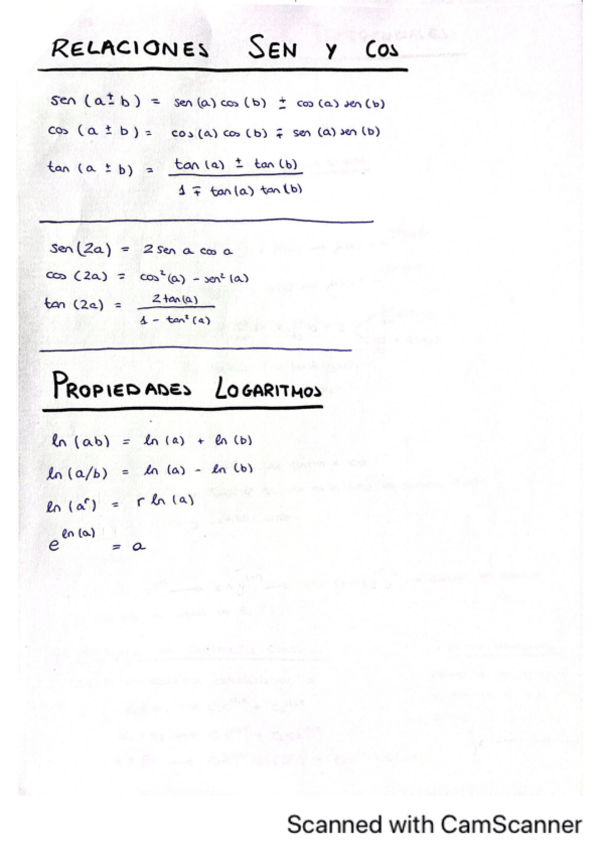 RELACIONES SEN Y COS
sen (a ± b) = sen (a) cos (b) ± cos (a) sen (b)
cos (a ± b) = cos (a) cos (b) ∓ sen (a) sen (b)
tan (a ± b) = tan (a) ± tan (b)
1 ∓ tan (a) tan (b)
sen (2a) = 2 sen a cos a
cos (2a) = cos² (a) - sen² (a)
tan (2a) = 2 tan (a)
1 - tan² (a)
PROPIEDADES LOGARITMOS
ln (ab) = ln (a) + ln (b)
ln (a/b) = ln (a) - ln (b)
ln (aʳ) = r ln (a)
e^ln (a) = a
Scanned with CamScanner